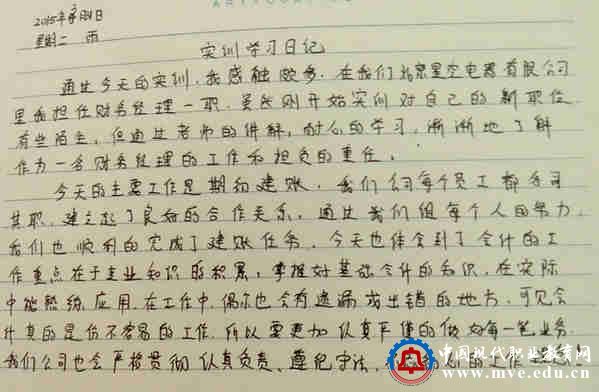 2015年3月31日
星期二 雨
实训学习日记
通过今天的实训,我感触颇多,在我们北京星空电器有限公司
里我担任财务经理一职,虽然刚开始实训对自己的新职位
有些陌生,但通过老师的讲解,耐心的学习,渐渐地了解
作为一名财务经理的工作和担负的重任。
今天的主要工作是期初建账,我们公司每个员工都各司
其职,建立起了良好的合作关系,通过我们组每个人的努力
我们也顺利的完成了建账任务,今天也体会到了会计的工
作重点在于专业知识的积累,掌握好基础会计的知识,在实际
中能熟练应用,在工作中,偶尔也会有遗漏或出错的地方,可见会
计真的是份不容易的工作,所以要更加认真严谨的做好每一笔业务,
我们公司也会严格贯彻认真负责、遵纪守法、的工作
中国现代职业教育网
www.mve.edu.cn